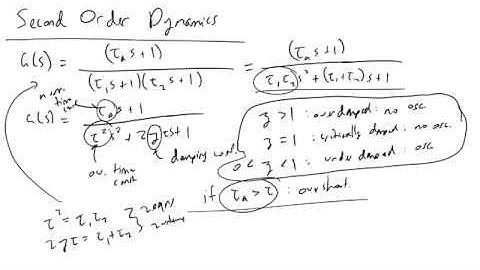 Second Order Dynamics
G(s) = (τₐs+1) / ((τ₁s+1)(τ₂s+1)) = (τₐs+1) / (τ₁τ₂s²+(τ₁+τ₂)s+1)
num. time
G(s) = τₐs+1 / τ²s²+2ζτs+1
ov. time const
damping
ζ>1 : overdamped : no osc.
ζ=1 : critically damped : no osc.
0<ζ<1 : under damped : osc
if τₐ>τ : overshoot.
τ² = τ₁τ₂
2ζτ = τ₁+τ₂
2 eqns